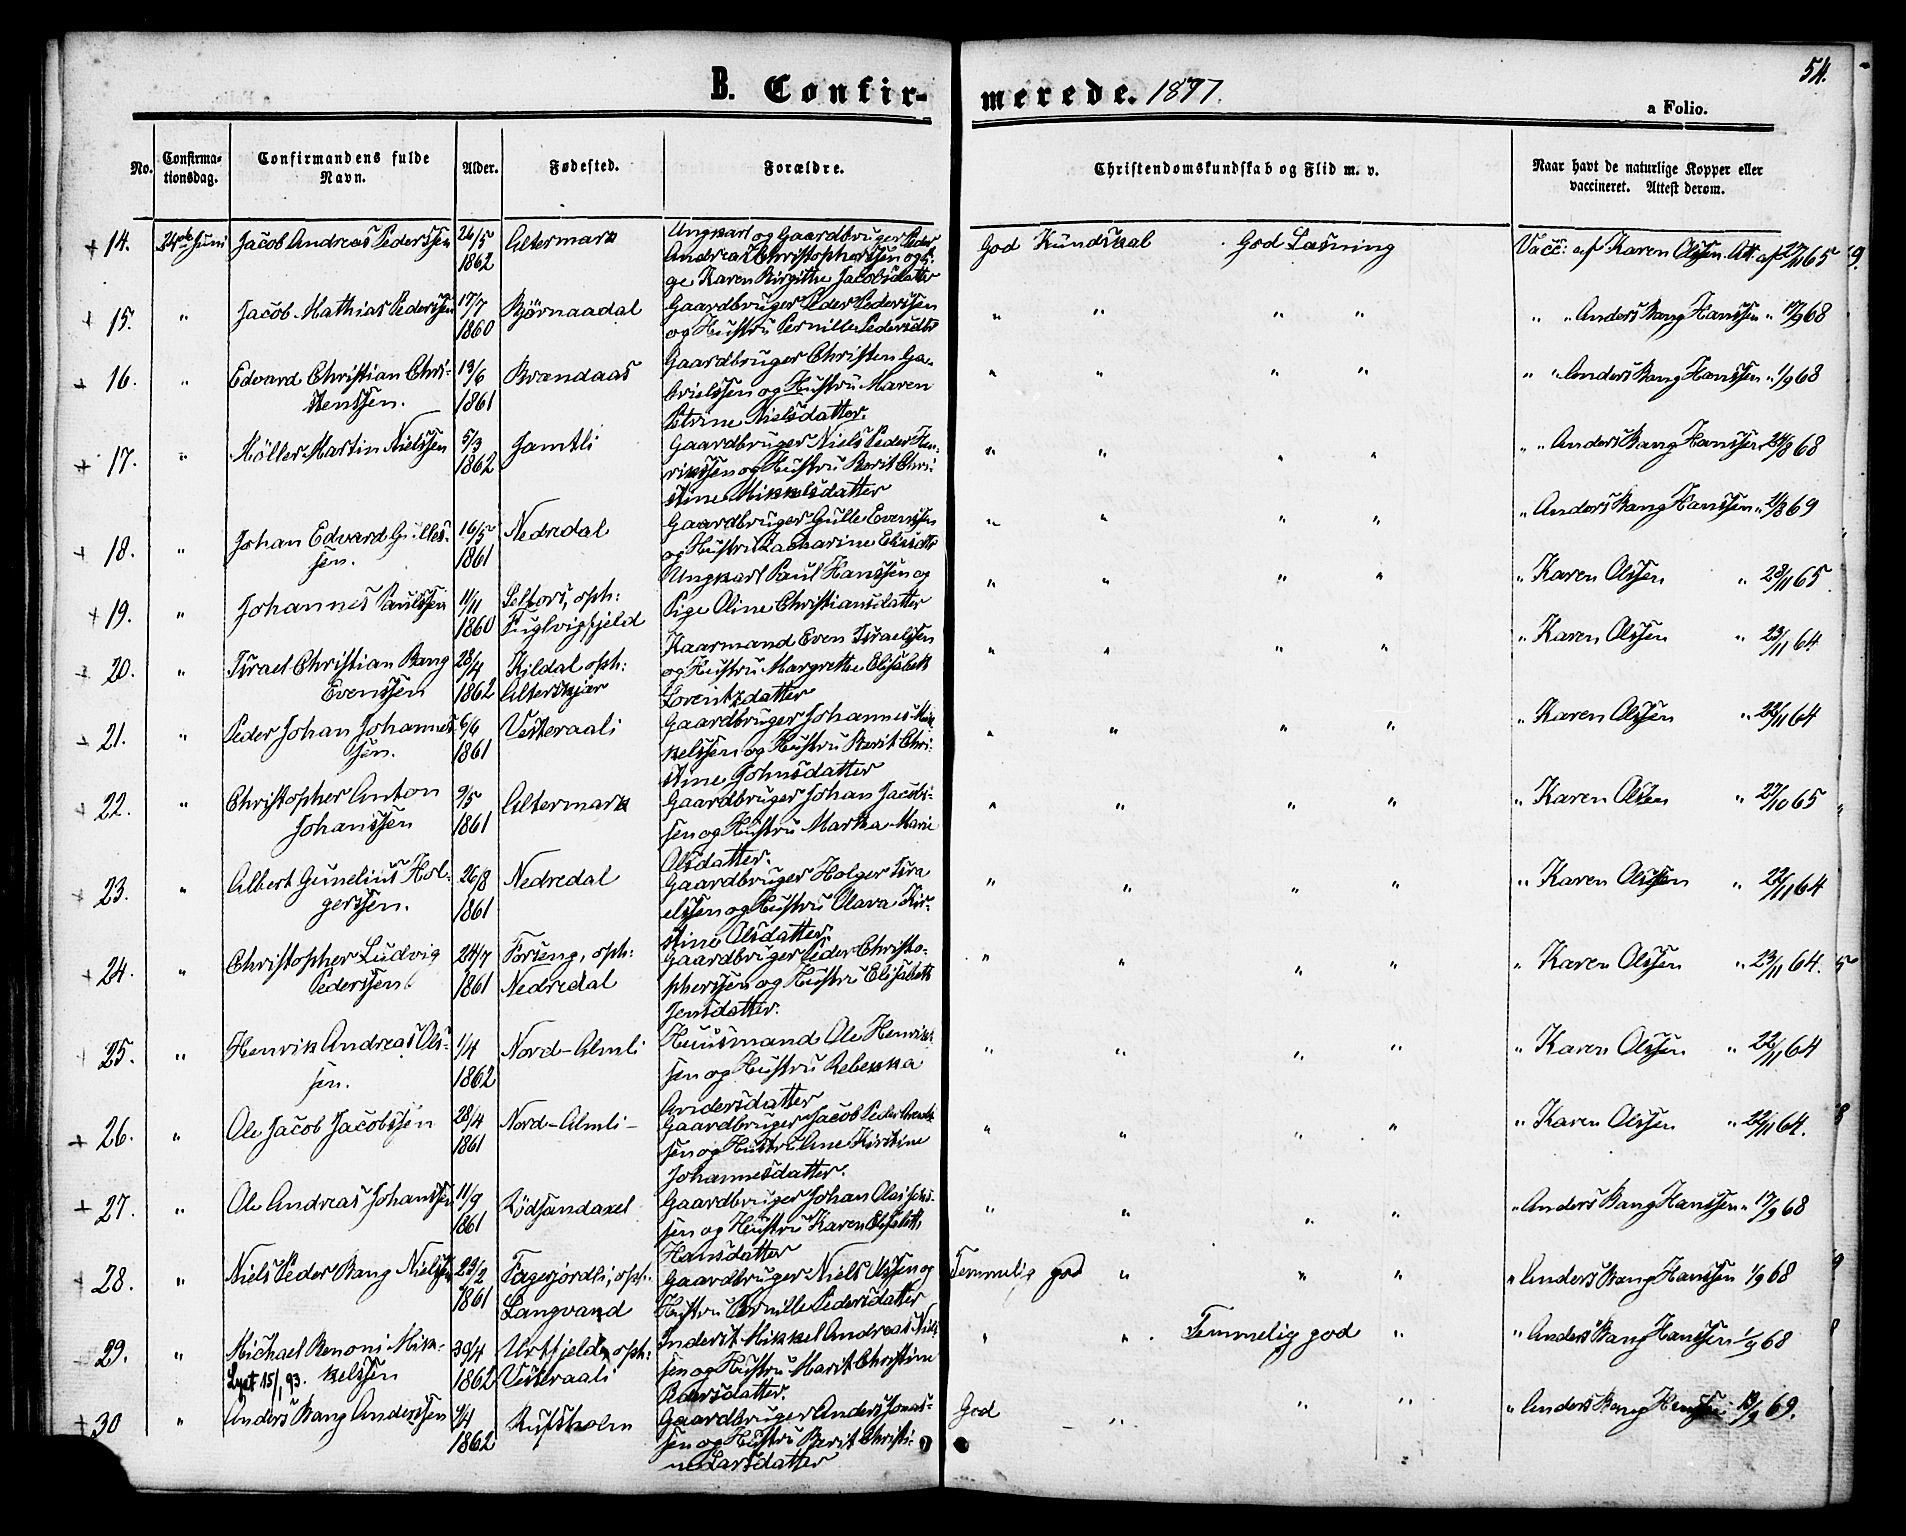 54.
B. Confirmerede. 1877.
a Folio.
No.
Confirmationsdag.
Confirmandens fulde Navn.
Alder.
Fødested.
Forældre.
Christendomskundskab og Flid m. v.
Naar havt de naturlige Kopper eller vaccineret. Attest derom.
+ 14. 24de Juni Jacob Andreas Pederssen 26/5 1862 Altermark
Ungkarl og Gaardbruger Peder
Andreas Christopherssen og Pi-
ge Karen Birgithe Jacobsdatter
God Kundskab God Læsning Vacc: af Karen Olssen Att. af 65
+ 15. " Jacob Mathias Pederssen 17/7 1860 Bjørnaadal
Gaardbruger Peder Pederssen
og Hustru Pernille Pedersdtr
" " " " " " Anders Bang Hanssen " 17/9 68
+ 16. " Edvard Christian Chri-
stenssen. 13/6 1861 Brændaas
Gaardbruger Christen Ga-
brielssen og Hustru Maren
Petrine Nielsdatter.
" " " " " " Anders Bang Hanssen " 1/9 68
+ 17. " Møller Martin Nielssen 5/3 1862 Jamtli
Gaardbruger Niels Peder Hen-
rikssen og Hustru Berit Chri-
stine Mikkelsdatter
" " " " " " Anders Bang Hanssen 24/8 68
+ 18. " Johan Edvard Gulles-
sen. 16/5 1861 Nedredal
Gaardbruger Gulle Evenssen
og Hustru Zacharine Eliasdtr
" " " " " Anders Bang Hanssen " 69
+ 19. " Johannes Paulssen 11/11 1860 Selfors, oph:
Fuglvigfjeld
Ungkarl Paul Hanssen og
Pige Oline Christiansdatter
" " " " " Karen Olssen " 28/11 65
+ 20. " Israel Christian Bang
Evenssen 28/4 1862 Kildal oph:
Alterskjær
Kaarmand Even Israelssen
og Hustru Margrethe Elisabeth
Lorentzdatter
" " " " " Karen Olssen " 23/11 64
+ 21. " Peder Johan Johannes-
sen. 6/6 1861 Vesteraali
Gaardbruger Johannes Mik-
kelssen og Hustru Berit Chri-
stine Johnsdatter
" " " " " Karen Olssen " 22/11 64
+ 22. " Christopher Anton
Johanssen 9/5 1861 Altermark
Gaardbruger Johan Jacobs-
sen og Hustru Martha Marie
Olsdatter.
" " " " " Karen Olssen " 27/10 65
+ 23. " Albert Gunelius Hol-
gerssen. 26/8 1861 Nedredal
Gaardbruger Holger Isra
elssen og Hustru Olava Kir-
stine Olsdatter.
" " " " " Karen Olssen " 22/11 64
+ 24. " Christopher Ludvig
Pederssen. 24/7 1861 Forseng, oph:
Nedredal
Gaardbruger Peder Christo-
pherssen og Hustru Elisabeth
Jensdatter.
" " " " " Karen Olssen " 23/11 64.
+ 25. " Henrik Andreas Ols-
sen. 1/4 1862 Nord-Almli
Huusmand Ole Henriks-
sen og Hustru Rebekka
Andersdatter
" " " " " Karen Olssen " 22/11 64
+ 26. " Ole Jacob Jacobssen 28/4 1861 Nord-Almli
Gaardbruger Jacob Peder
sen og Hustru Ane Kirstine
Johannesdatter.
" " " " " Karen Olssen " 22/11 64.
+ 27. " Ole Andreas Johanssen 11/9 1861 Rødsandaxel
Gaardbruger Johan Olai
sen og Hustru Karen Elisabeth
Hansdatter
" " " " " Anders Bang Hanssen " 17/9 68
+ 28. " Niels Peder Bang Nielssen 23/2 1861 Fagerjordli, oph:
Langvand
Gaardbruger Niels Olssen og
Hustru Pernille Pedersdatter
Temmelig god " " " " Anders Bang Hanssen 1/9 68
29. " Michael Benoni Mik-
kelssen 30/4 1862 Urtfjeld, oph:
Vesteraali
Lyst 15/1 93.
Inderst Mikkel Andreas Niels
sen og Hustru Marit Christine
Pedersdatter.
" " Temmelig god " " Anders Bang Hanssen 1/9 68
+ 30 " Anders Bang Anderssen 4/4 1862 Rufsholm
Gaardbruger Anders Jonas-
sen og Hustru Berit Christi-
ne Larsdatter
God " " " " Anders Bang Hanssen 69.